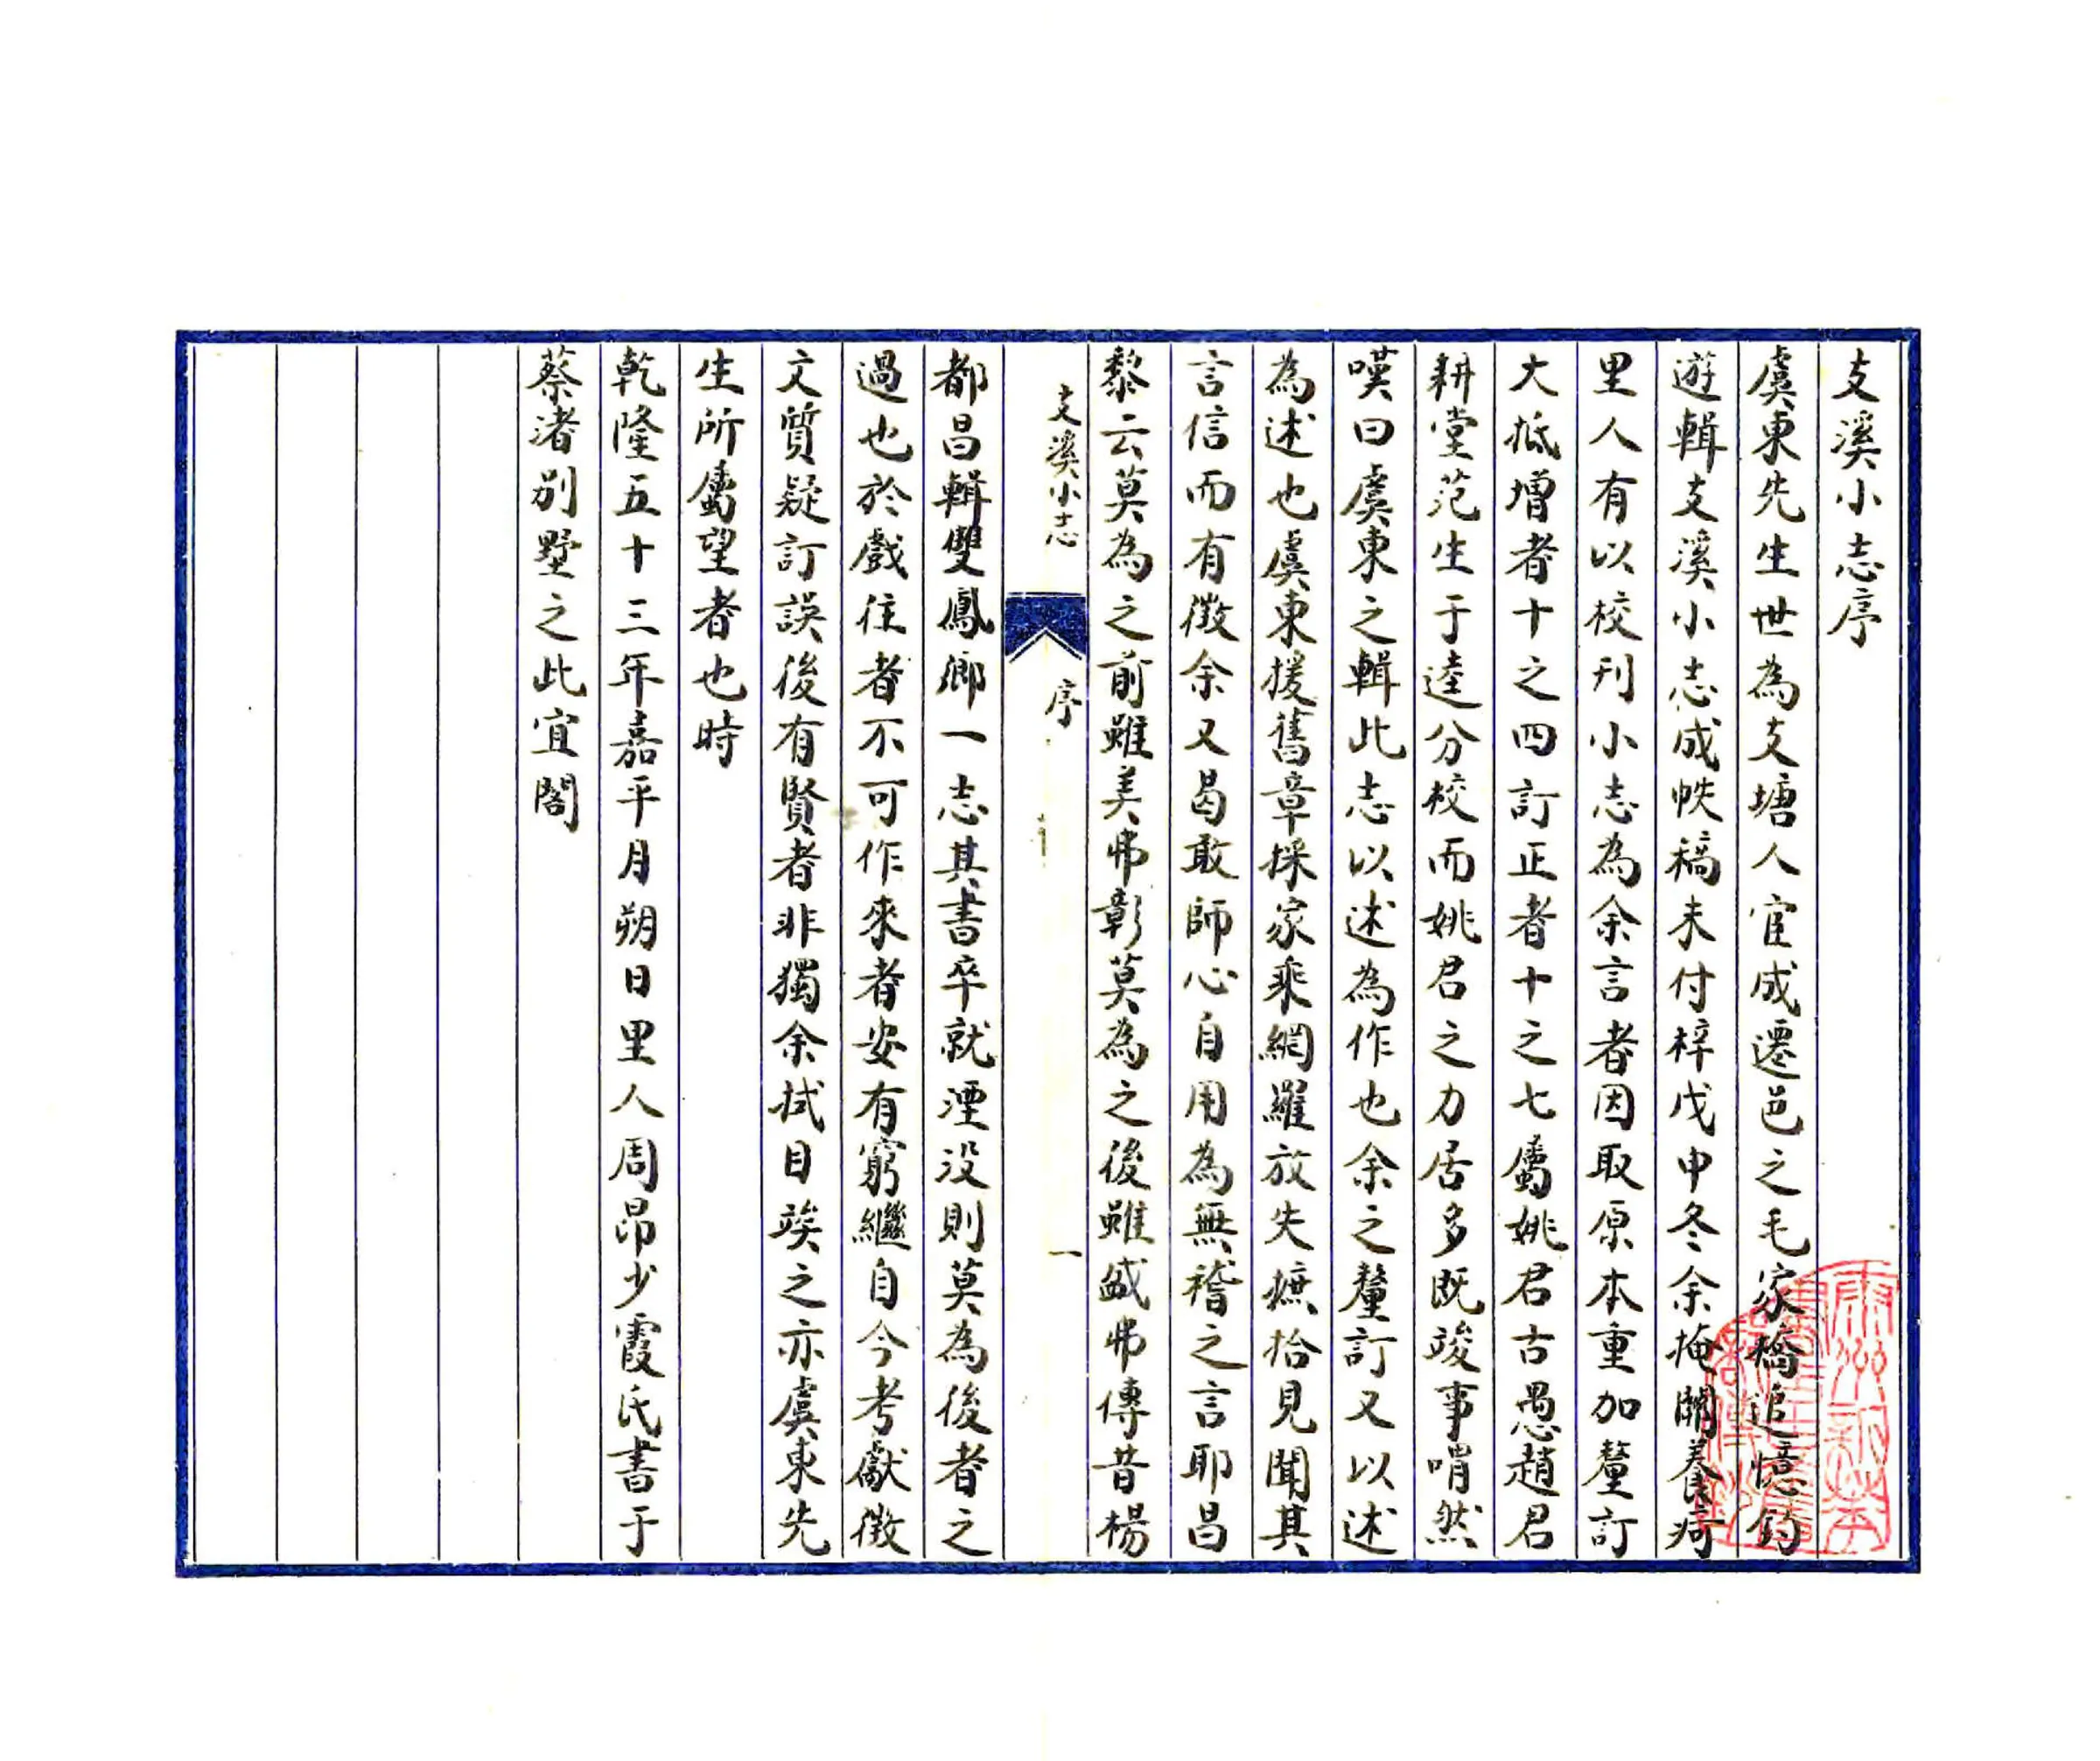 支溪小志序
虞東先生世為支塘人宦成遷邑之毛家橋追憶釣
遊輯支溪小志成帙稿未付梓戊申冬余掩關養疴
里人有以校刊小志為余言者因取原本重加釐訂
大抵增者十之四訂正者十之七屬姚君古愚趙君
耕堂范生于逵分校而姚君之力居多既竣事喟然
嘆曰虞東之輯此志以述為作也余之釐訂又以述
為述也虞東援舊章採家乘網羅放失摭拾見聞其
言信而有徵余又曷敢師心自用為無稽之言耶昌
黎云莫為之前雖美弗彰莫為之後雖盛弗傳昔楊
支溪小志 序 一
都昌輯雙鳳鄉一志其書卒就湮没則莫為後者之
過也於戲往者不可作來者安有窮繼自今考獻徵
文質疑訂誤後有賢者非獨余拭目竢之亦虞東先
生所屬望者也時
乾隆五十三年嘉平月朔日里人周昂少霞氏書于
蔡渚別墅之此宜閣